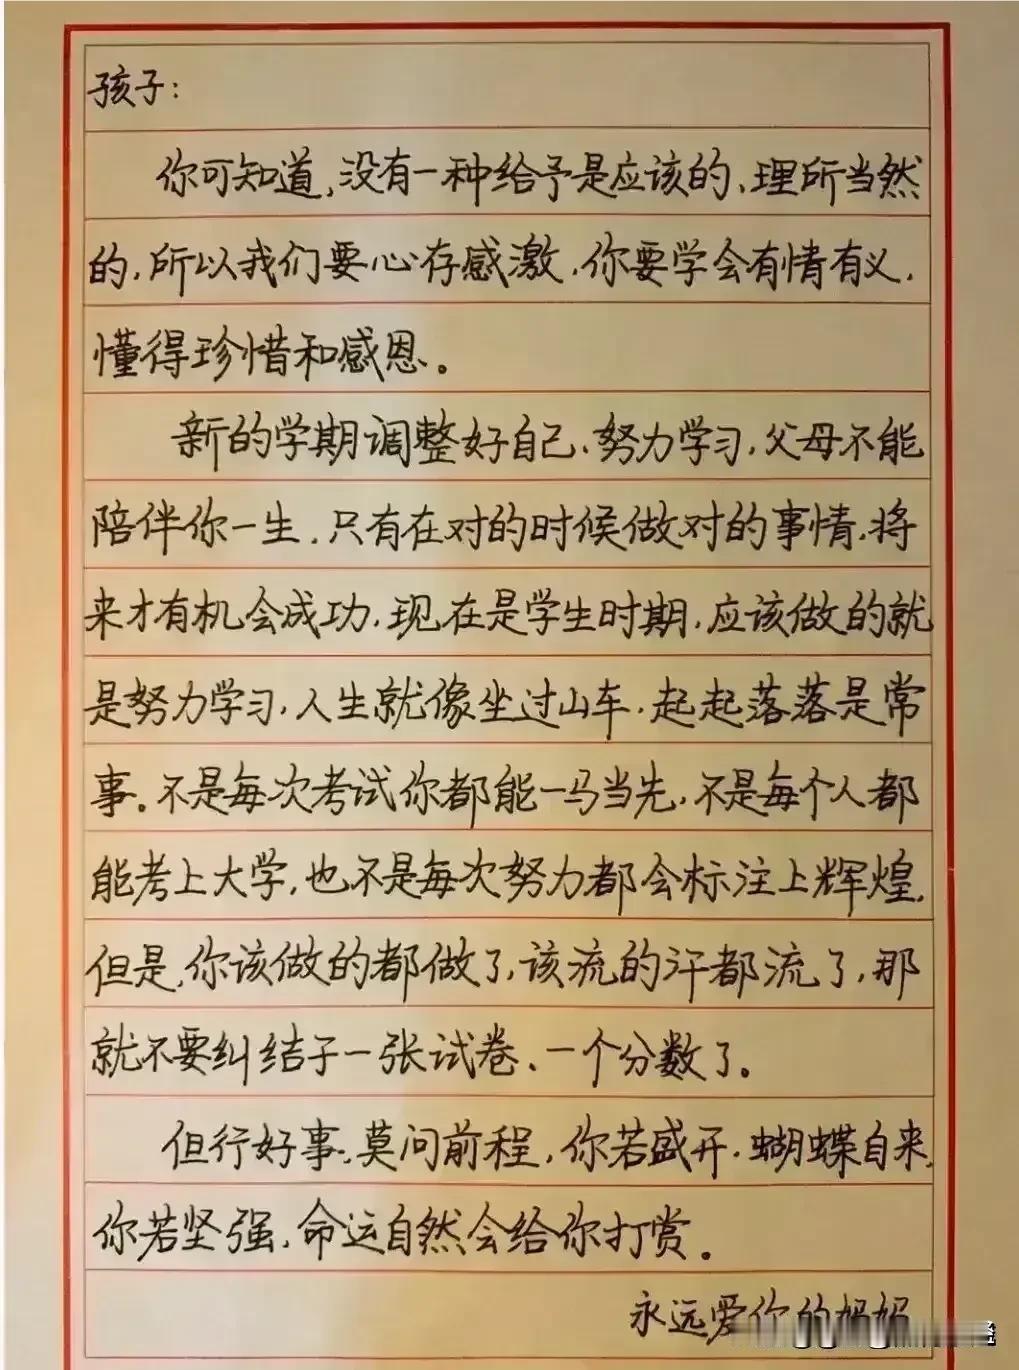 孩子：
你可知道，没有一种给予是应该的、理所当然
的，所以我们要心存感激，你要学会有情有义，
懂得珍惜和感恩。
新的学期调整好自己、努力学习，父母不能
陪伴你一生，只有在对的时候做对的事情，将
来才有机会成功，现在是学生时期，应该做的就
是努力学习，人生就像坐过山车，起起落落是常
事。不是每次考试你都能一马当先，不是每个人都
能考上大学，也不是每次努力都会标注上辉煌，
但是，你该做的都做了，该流的汗都流了，那
就不要纠结于一张试卷、一个分数了。
但行好事，莫问前程，你若盛开，蝴蝶自来，
你若坚强，命运自然会给你打赏。
永远爱你的妈妈